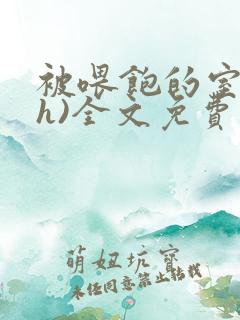 被喂飽的室
h)全文免費
萌妞坑寶
未経同意禁止转载